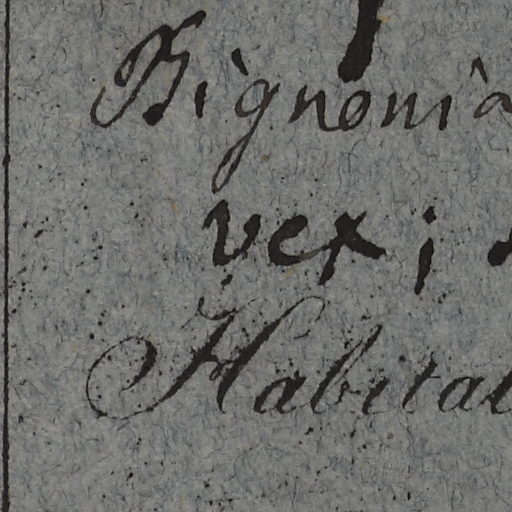 Bignonia
vex;
Habitat